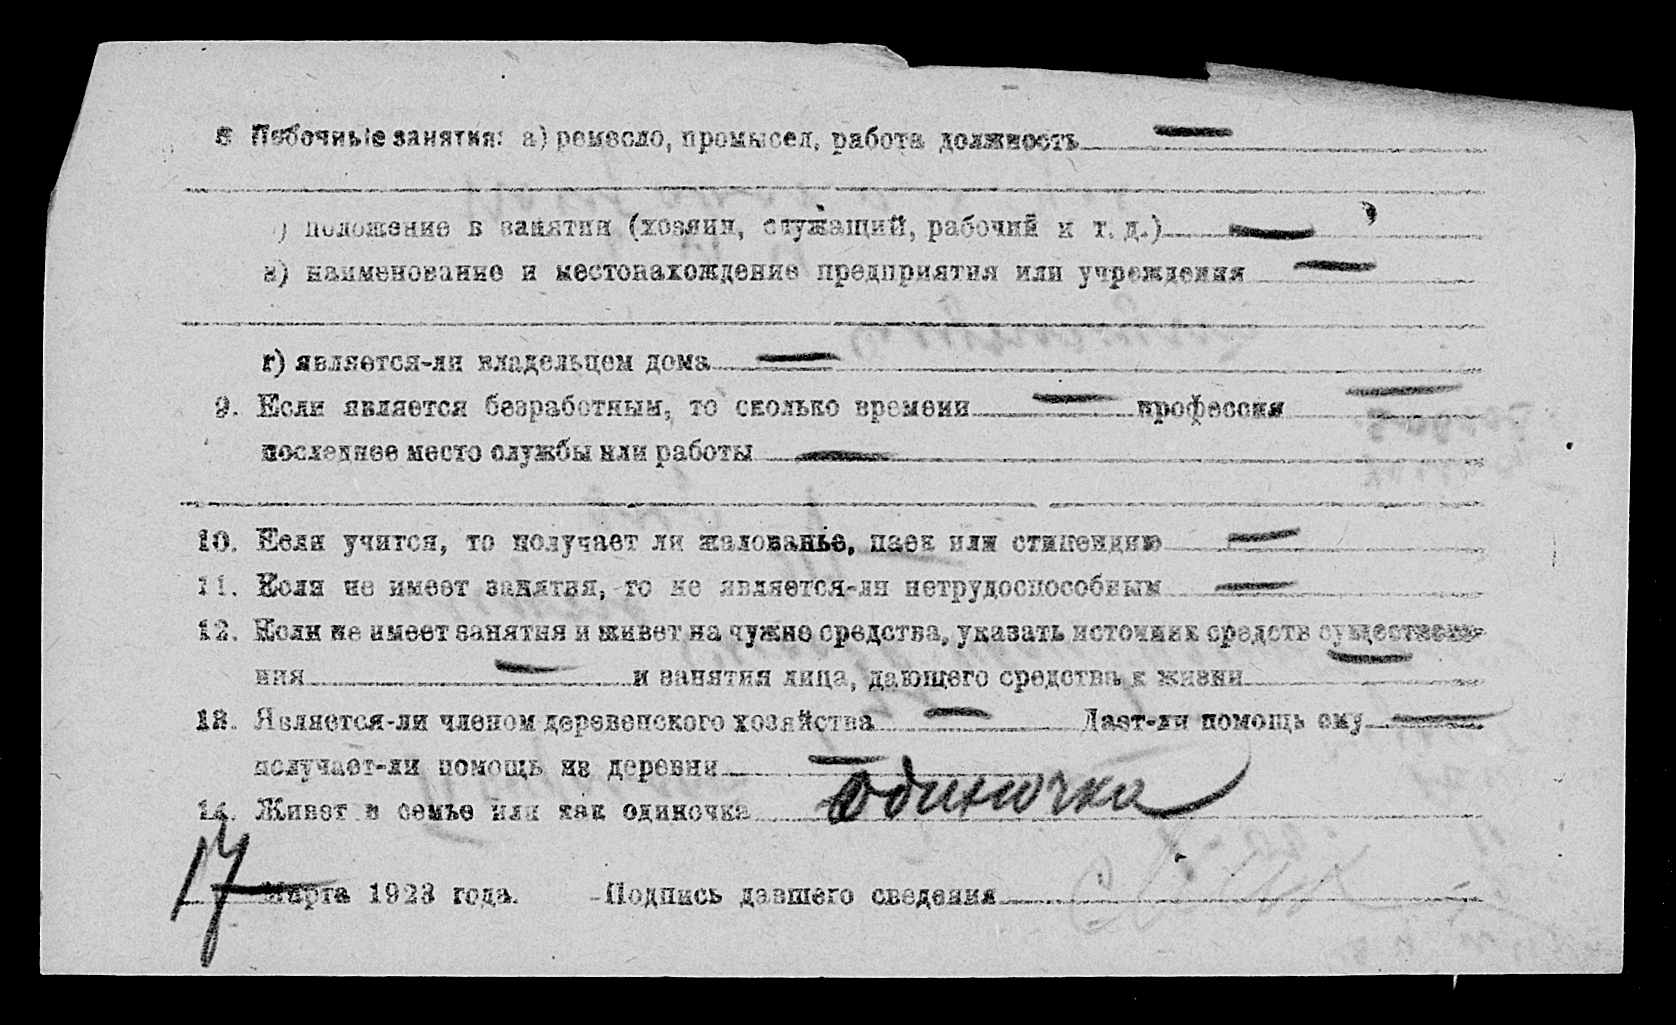 8 Побочные занятия: а) ремесло, промысел, работа должность —
) положение в занятии (хозяин, служащий, рабочий и т. д.) —
в) наименование и местонахождение предприятия или учреждения —
г) является-ли владельцем дома —
9. Если является безработным, то сколько времени — профессия —
последнее место службы или работы —
10. Если учится, то получает ли жалованье, паек или стипендию —
11. Если не имеет занятия, то не является-ли нетрудоспособным —
12. Если не имеет занятия и живет на чужие средства, указать источник средств существова-
ния — и занятия лица, дающего средства к жизни —
13. Является-ли членом деревенского хозяйства — Дает-ли помощь ему —
получает-ли помощь из деревни —
14. Живет в семье или как одиночка одиночка
17 Марта 1923 года. Подпись давшего сведения